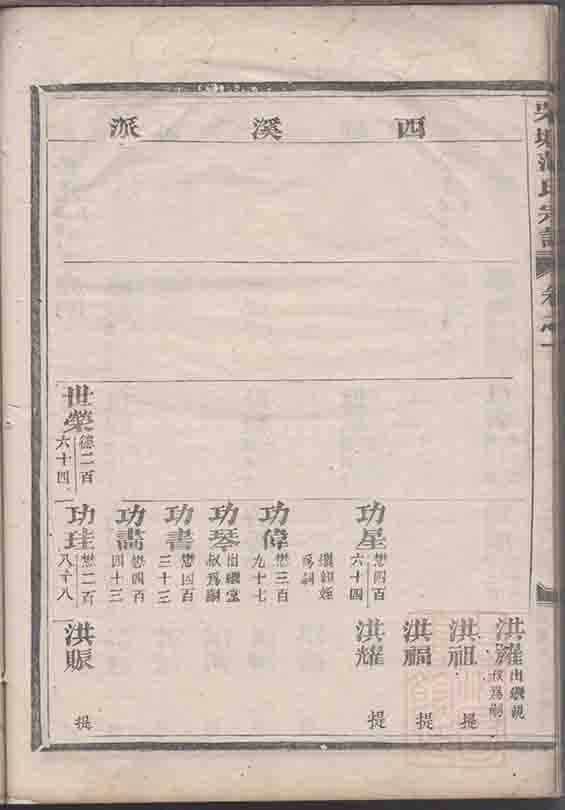 氏宗譜
卷之一
西溪派
世榮 德二百六十四
功星 懋四百六十四
繼姪為嗣
功偉 懋三百九十七
功琴 出繼堂叔為嗣
功書 懋四百三十三
功 懋四百四十三
功珪 懋二百八十八
洪 出繼親叔為嗣
洪祖 提
洪福 提
洪耀 提
洪賑 提